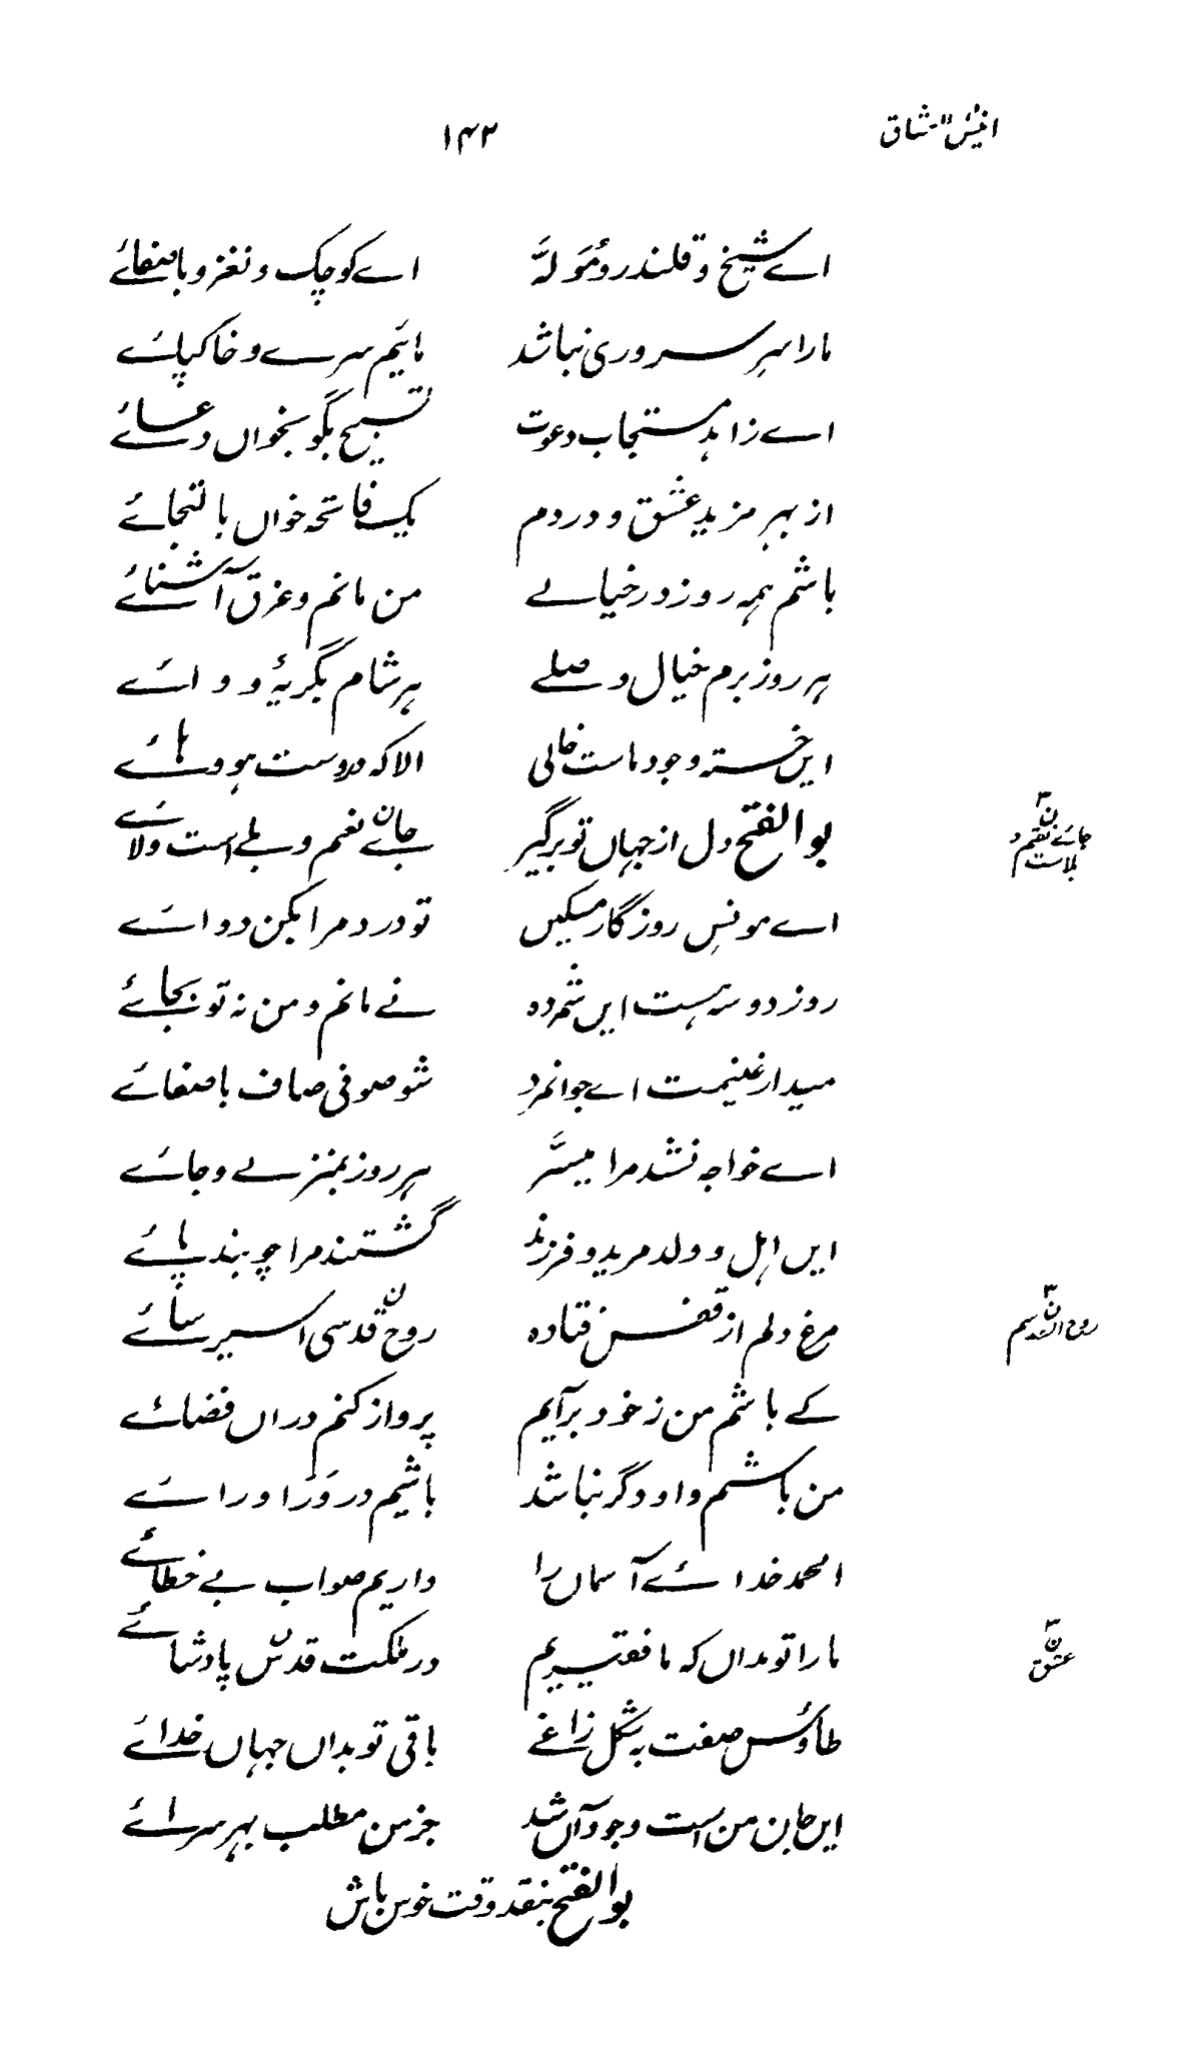 انیس العشاق ۱۴۲
اے شیخ و قلندر و مُوَلہَّ اے کوچک و نغز و با صفائے
ما را سرِ سروری نباشد مائیم سرے و خاکپائے
اے زاہد مستجاب دعوت تسبیح بگو بخواں دعائے
از بہرِ مزیدِ عشق و دردم یک فاتحہ خواں با لتجائے
باشم ہمہ روز در خیالے من مانم و غرق آشنائے
ہر روز برم خیال وصلے ہر شام بگریۂ و وائے
ایں خستہ وجود ماست خالی الا کہ دروست ہو و ہائے
بو الفتح دل از جہاں تو برگیر جانے نغم و بلے است ولائے
اے مونسِ روزگار مسکیں تو درد مرا بکن دوائے
روز دو سہ ہست ایں شمردہ نے مانم و من نہ تو بجائے
میدار غنیمت اے جوانمرد شو صوفی صاف با صفائے
اے خواجہ نشد مرا میسَّر ہر روز بمنزلے و جائے
ایں اہل و ولد مرید و فرزند گشتند مرا چو بند پائے
مرغ دلم از قفس فتادہ روح قدسی اسیر سائے
کے باشم من ز خود برآیم پرواز کنم دراں فضائے
من باشم و او دگر نباشد باشیم در وَرَا ورائے
الحمد خدائے آسماں را داریم صواب بے خطائے
ما را تو مداں کہ ما فقیریم در ملکت قدس پادشائے
طاؤس صفت بہ شکل زاغے باقی تو بداں جہاں خدائے
ایں جان من است وجود آں شد جز من مطلب بہر سرائے
بو الفتح بنقد وقت خوش باش
عشق